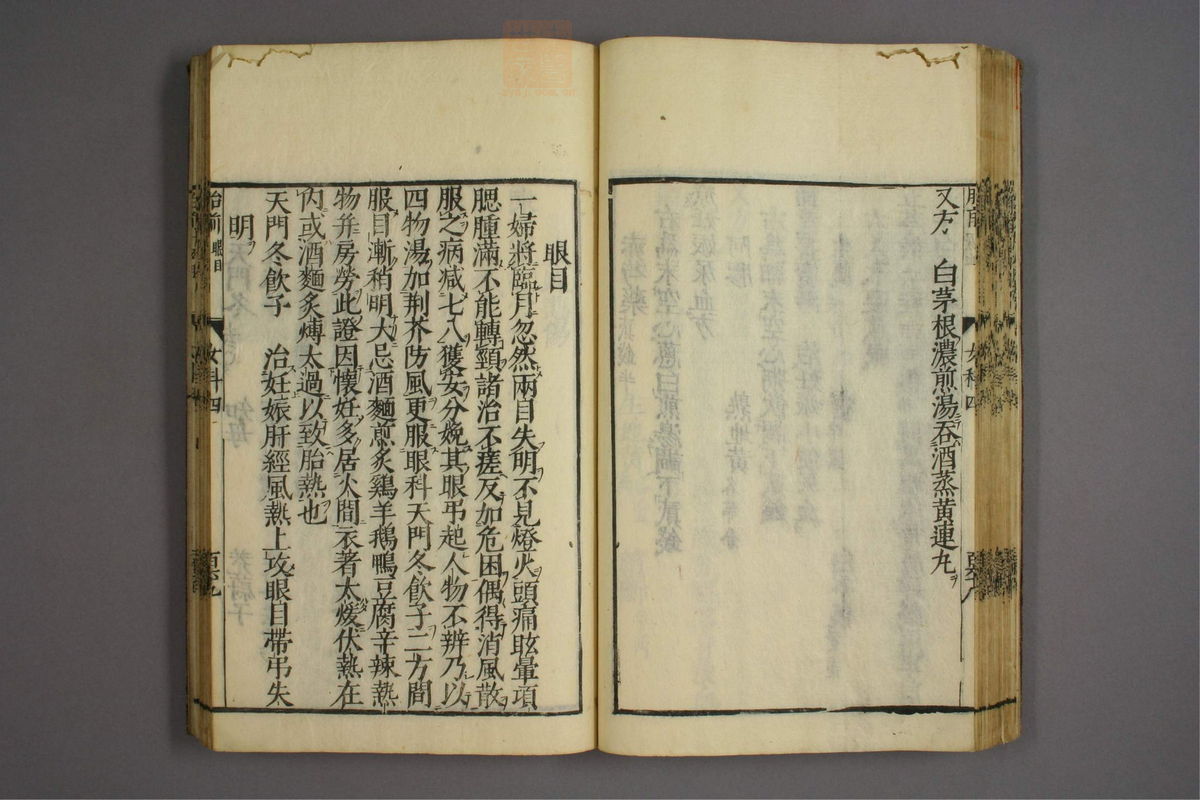 又方 白茅根濃煎湯吞酒蒸黃連丸
女科四
眼目
一婦將臨月忽然兩目失明不見燈火頭痛眩暈項
腮腫滿不能轉頸諸治不瘥反加危困偶得消風散
服之病減七八獲安分娩其眼弔起人物不辨乃以
四物湯加荆芥防風更服眼科天門冬飲子二方間
服目漸稍明大忌酒麵煎炙鷄羊鵝鴨豆腐辛辣熱
物并房勞此證因懷妊多居火間衣著太煖伏熱在
內或酒麵炙煿太過以致胎熱也
天門冬飲子 治妊娠肝經風熱上攻眼目帶弔失
明
胎前 眼目 女科四